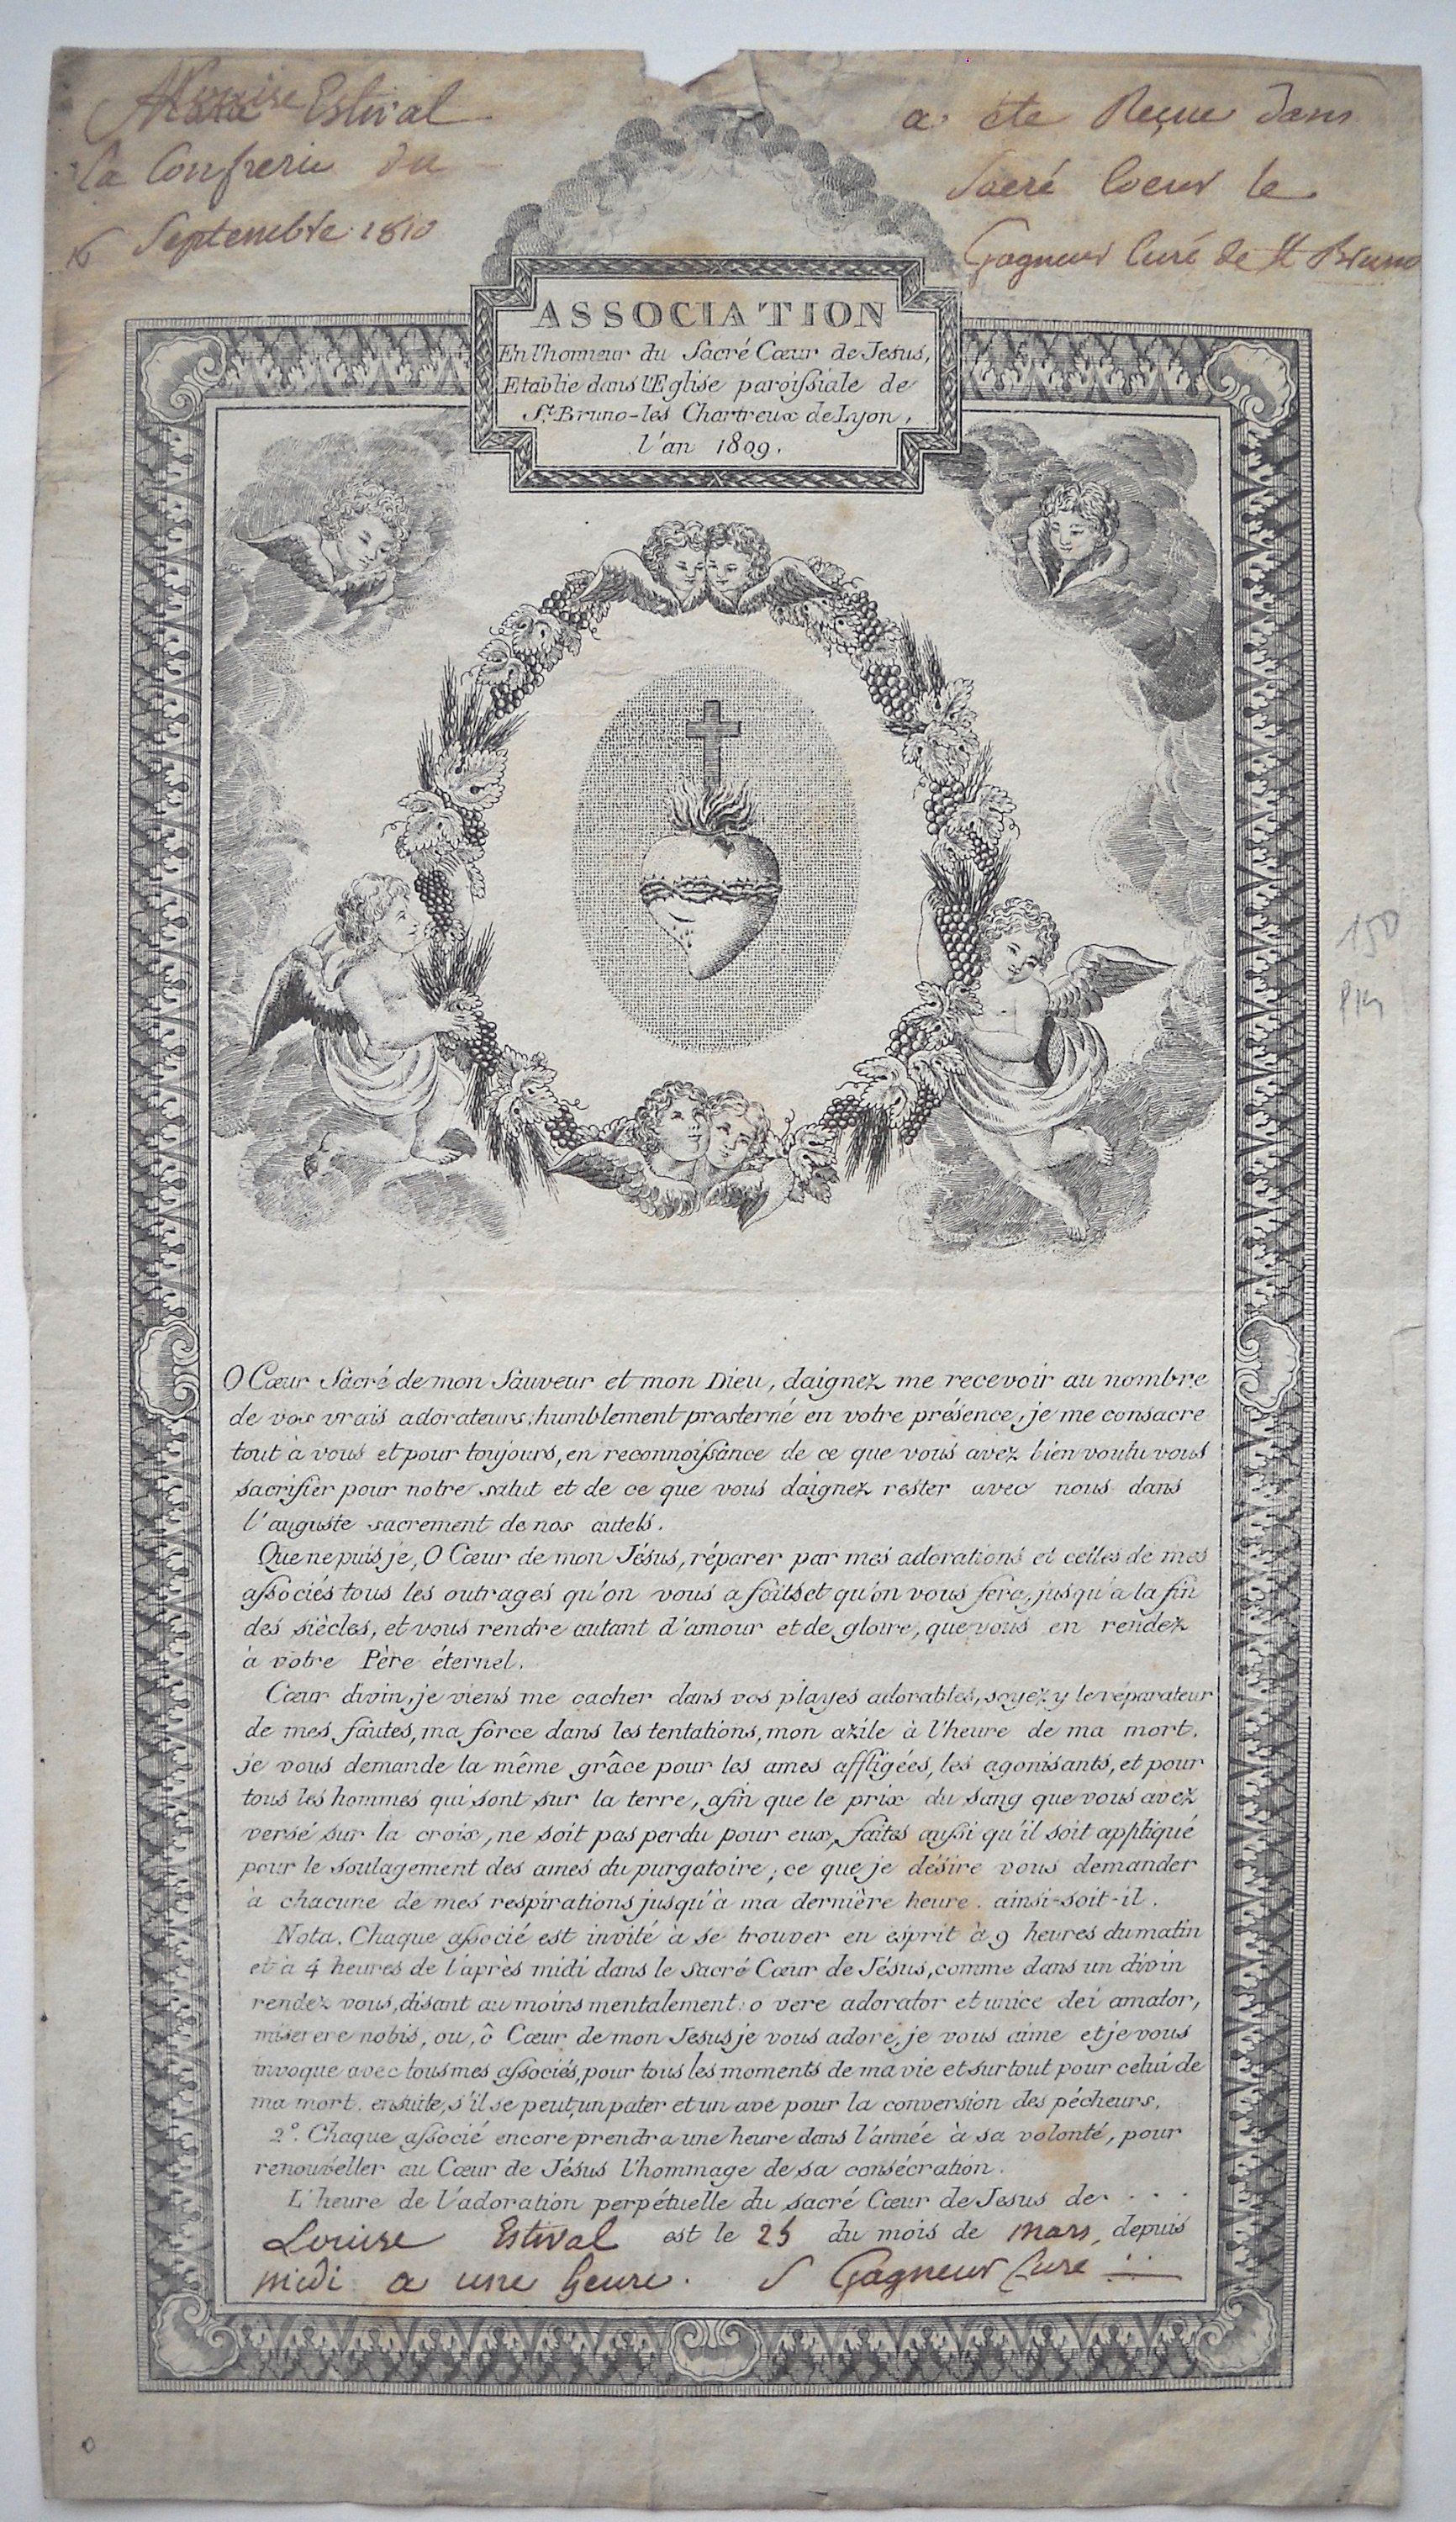 Louise Estival a été Reçue dans
la Confrerie du Sacré Coeur le
16 Septembre 1810 Gagneur Curé de St Bruno
ASSOCIATION
En l'honneur du Sacré Cœur de Jesus,
Etablie dans l'Eglise paroiſsiale de
St. Bruno-les Chartreux de Lyon,
l'an 1809.
150
O Cœur Sacré de mon Sauveur et mon Dieu, daignez me recevoir au nombre
de vos vrais adorateurs; humblement prosterné en votre présence, je me consacre
tout à vous et pour toujours, en reconnoiſsance de ce que vous avez bien voulu vous
sacrifier pour notre salut et de ce que vous daignez rester avec nous dans
l'auguste sacrement de nos autels.
Que ne puis je, O Cœur de mon Jésus, réparer par mes adorations et celles de mes
aſsociés tous les outrages qu'on vous a faits et qu'on vous fera, jusqu'à la fin
des siècles, et vous rendre autant d'amour et de gloire, que vous en rendez
à votre Père éternel.
Cœur divin, je viens me cacher dans vos playes adorables, soyez y le réparateur
de mes fautes, ma force dans les tentations, mon azile à l'heure de ma mort.
je vous demande la même grâce pour les ames affligées, les agonisants, et pour
tous les hommes qui sont sur la terre, afin que le prix du sang que vous avez
versé sur la croix, ne soit pas perdu pour eux, faites auſsi qu'il soit appliqué
pour le soulagement des ames du purgatoire; ce que je désire vous demander
à chacune de mes respirations jusqu'à ma dernière heure. ainsi-soit-il.
Nota. Chaque aſsocié est invité à se trouver en esprit à 9 heures du matin
et à 4 heures de l'après midi dans le Sacré Cœur de Jésus, comme dans un divin
rendez vous, disant au moins mentalement: o vere adorator et unice dei amator,
miserere nobis, ou, ô Cœur de mon Jesus je vous adore, je vous aime et je vous
invoque avec tous mes aſsociés, pour tous les moments de ma vie et surtout pour celui de
ma mort. ensuite, s'il se peut, un pater et un ave pour la conversion des pécheurs.
2°. Chaque aſsocié encore prendra une heure dans l'année à sa volonté, pour
renouveller au Cœur de Jésus l'hommage de sa consécration.
L'heure de l'adoration perpétuelle du sacré Cœur de Jesus de . . .
Louise Estival est le 25 du mois de mars, depuis
midi a une heure. Gagneur Curé